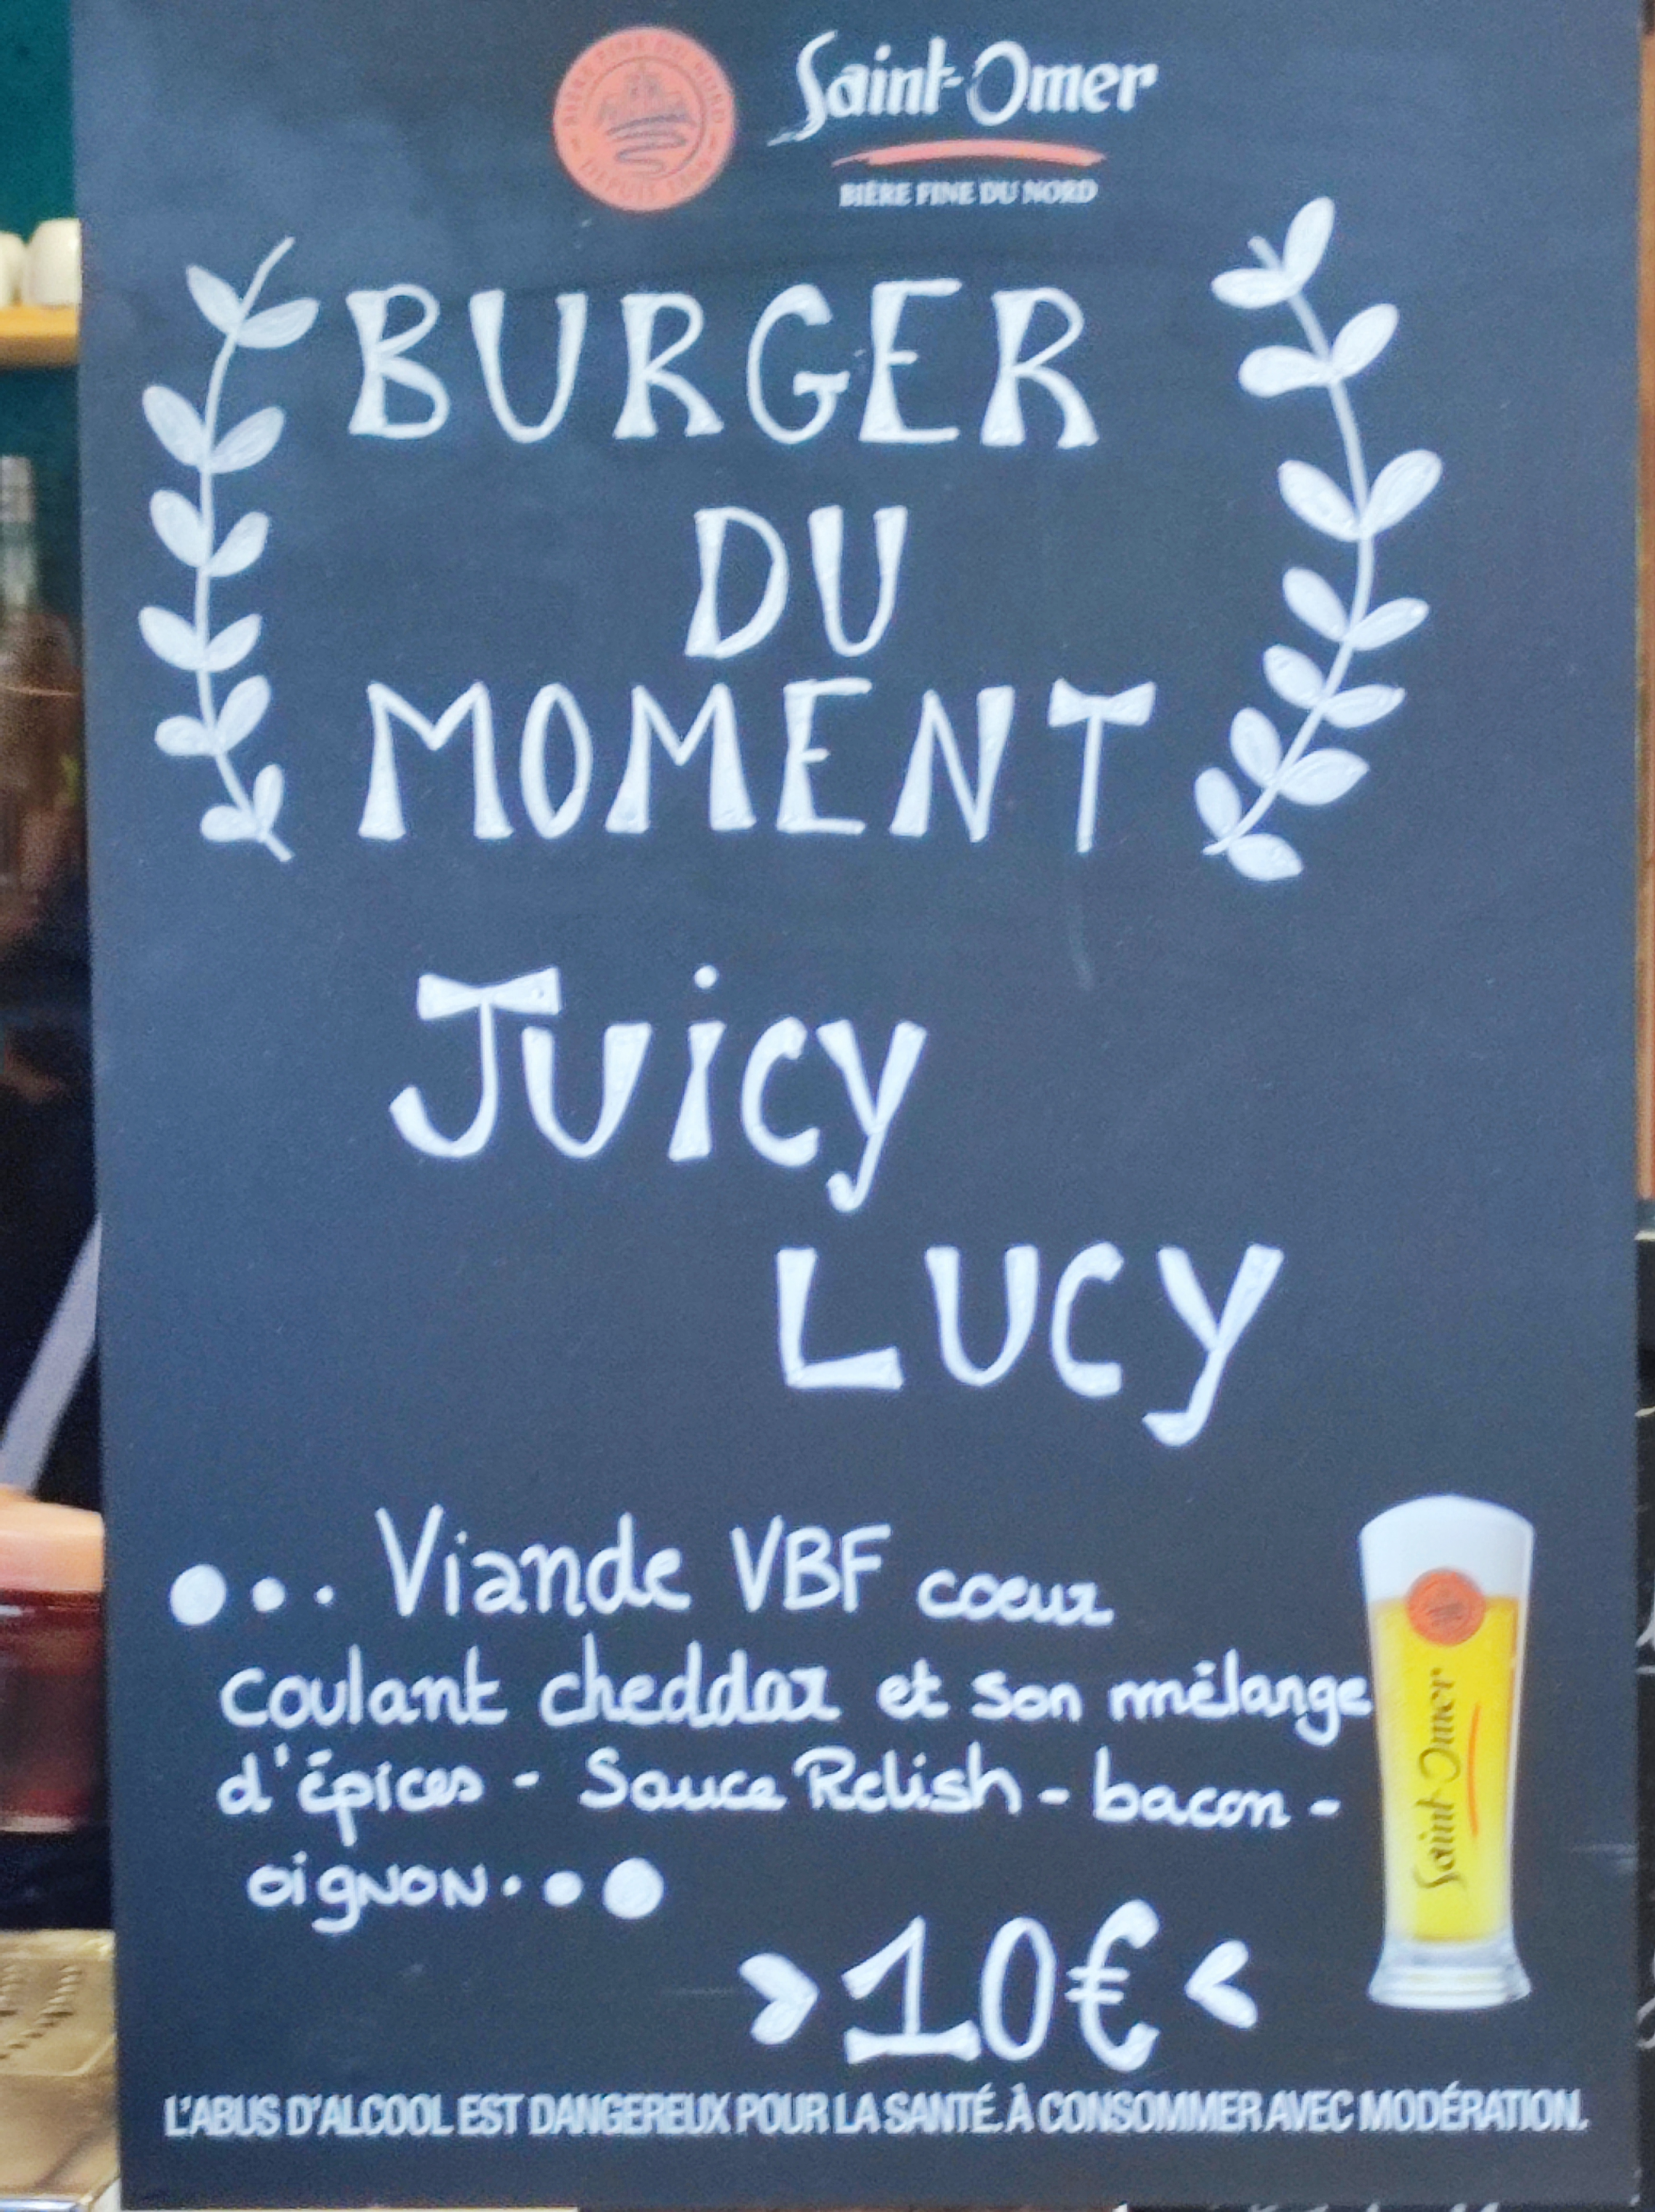 BIÈRE FINE DU NORD
Saint-Omer
BIÈRE FINE DU NORD
BURGER
DU
MOMENT
Juicy
LUCY
Viande VBF coeur
coulant cheddar et son mélange
d'épices - Sauce Relish - bacon -
oignon
>10€<
Saint-Omer
L'ABUS D'ALCOOL EST DANGEREUX POUR LA SANTÉ. À CONSOMMER AVEC MODÉRATION.